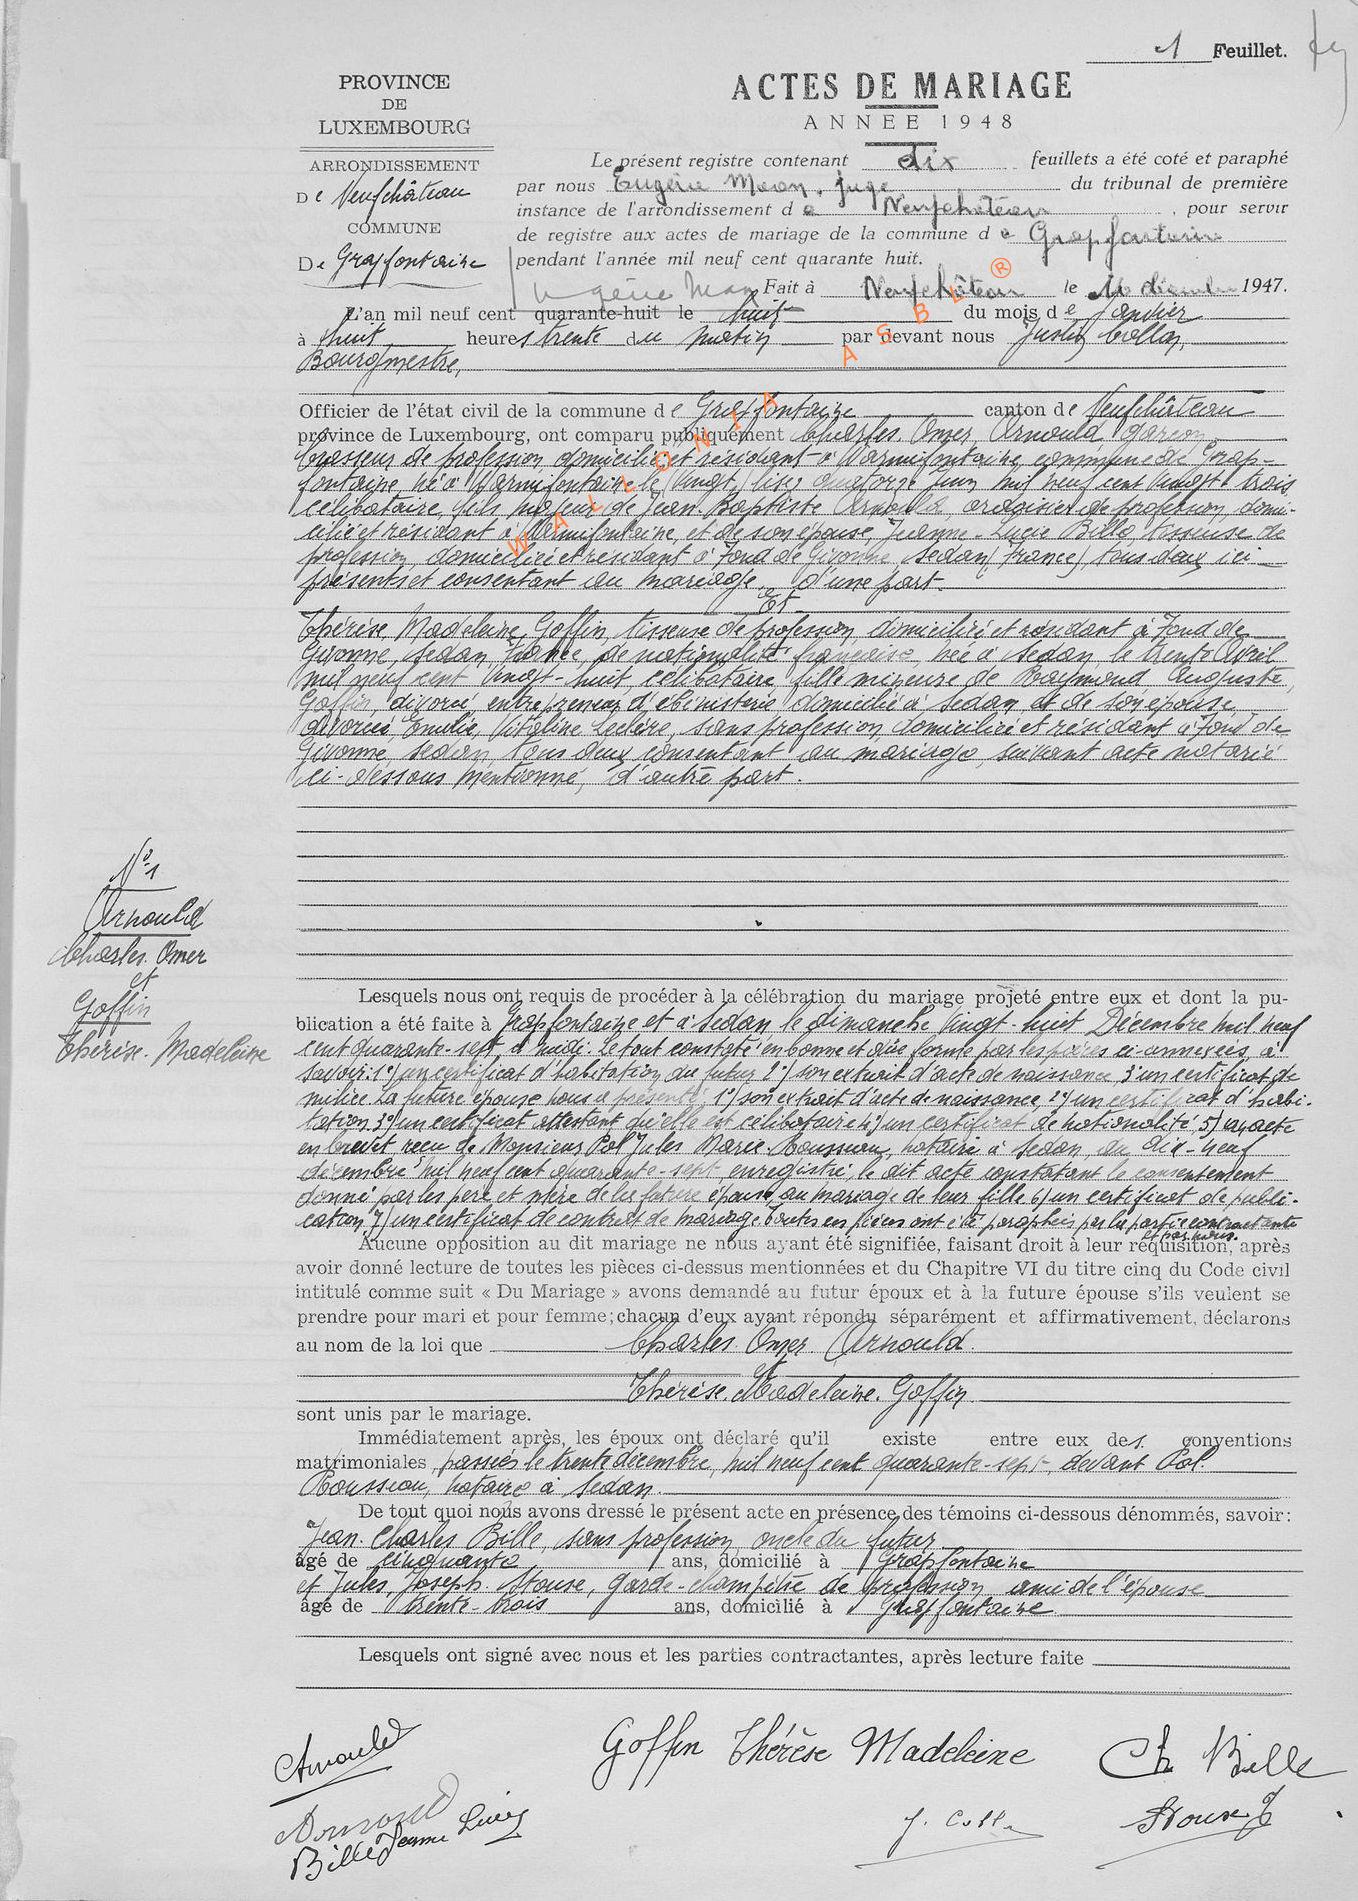 1 Feuillet.
PROVINCE
DE
LUXEMBOURG
ARRONDISSEMENT
De Neufchâteau
COMMUNE
De Grapfontaine
ACTES DE MARIAGE
ANNEE 1948
Le présent registre contenant dix feuillets a été coté et paraphé
par nous Eugène Juge du tribunal de première
instance de l'arrondissement de Neufchâteau, pour servir
de registre aux actes de mariage de la commune de Grapfontaine
pendant l'année mil neuf cent quarante huit.
Fait à Neufchâteau le décembre 1947.
L'an mil neuf cent quarante-huit le huit du mois de Janvier
à huit heures trente du matin par devant nous Justin Collas,
Bourgmestre,
Officier de l'état civil de la commune de Grapfontaine canton de Neufchâteau
province de Luxembourg, ont comparu publiquement Charles. Omer. Arnould garçon
brasseur de profession, domicilié et résidant à Warmifontaine, commune de Grap-
fontaine, né à Warmifontaine le (vingt) lisez quatorze Juin mil neuf cent vingt-trois,
célibataire, fils majeur de Jean-Baptiste Arnould ardoisier de profession, domi-
cilié et résidant à Warmifontaine, et de son épouse, Jeanne-Lucie Bille, tisseuse de
profession, domiciliée et résidant à Fond de Givonne, Sedan (France) tous deux ici
présents et consentant au mariage, d'une part.
Et
Thérèse Madeleine Goffin, tisseuse de profession, domiciliée et résidant à Fond de
Givonne, Sedan, France, de nationalité française, née à Sedan le trente Avril
mil neuf cent vingt-huit, célibataire, fille mineure de Raymond Auguste,
Goffin, divorcé, entrepreneur d'ébénisterie domicilié à Sedan et de son épouse,
divorcée, Emilie, Vitaline Leclère, sans profession, domiciliée et résidant à Fond de
Givonne, Sedan, tous deux consentant au mariage suivant acte notarié
ci-dessous mentionné, d'autre part.
N° 1
Arnould
Charles. Omer
et
Goffin
Thérèse. Madeleine
Lesquels nous ont requis de procéder à la célébration du mariage projeté entre eux et dont la pu-
blication a été faite à Grapfontaine et à Sedan le dimanche vingt-huit Décembre mil neuf
cent quarante-sept, à midi. Le tout constaté en bonne et due forme par les pièces ci-annexées, à
savoir: 1°) un certificat d'habitation du futur 2°) son extrait d'acte de naissance, 3° un certificat de
milice. La future épouse nous a présenté: 1°) son extrait d'acte de naissance, 2°) un certificat d'habi-
tation 3°) un certificat attestant qu'elle est célibataire 4°) un certificat de nationalité, 5) un acte
en brevet reçu de Monsieur Pol Jules Marie. Rousseau, notaire à Sedan, du dix-neuf
décembre mil neuf cent quarante-sept, enregistré, le dit acte constatant le consentement
donné par les père et mère de la future épouse, au mariage de leur fille 6) un certificat de publi-
cation 7) un certificat de contrat de mariage. Toutes ces pièces ont été paraphées par la partie contractante
et par nous.
Aucune opposition au dit mariage ne nous ayant été signifiée, faisant droit à leur réquisition, après
avoir donné lecture de toutes les pièces ci-dessus mentionnées et du Chapitre VI du titre cinq du Code civil
intitulé comme suit « Du Mariage » avons demandé au futur époux et à la future épouse s'ils veulent se
prendre pour mari et pour femme; chacun d'eux ayant répondu séparément et affirmativement, déclarons
au nom de la loi que Charles. Omer. Arnould.
et
Thérèse. Madeleine. Goffin.
sont unis par le mariage.
Immédiatement après, les époux ont déclaré qu'il existe entre eux des conventions
matrimoniales, passées le trente décembre, mil neuf cent quarante-sept, devant Pol
Rousseau, notaire à Sedan.
De tout quoi nous avons dressé le présent acte en présence des témoins ci-dessous dénommés, savoir:
Jean. Charles Bille, sans profession, oncle du futur
âgé de cinquante ans, domicilié à Grapfontaine
et Jules, Joseph. Stouse, garde-champêtre de profession, ami de l'épouse
âgé de trente-trois ans, domicilié à Grapfontaine.
Lesquels ont signé avec nous et les parties contractantes, après lecture faite
Arnould
Goffin Thérèse Madeleine
Ch Bille
Arnould
Bille Jeanne Lucie
J. Colla
Stouse J
WALLONIA ASBL ®